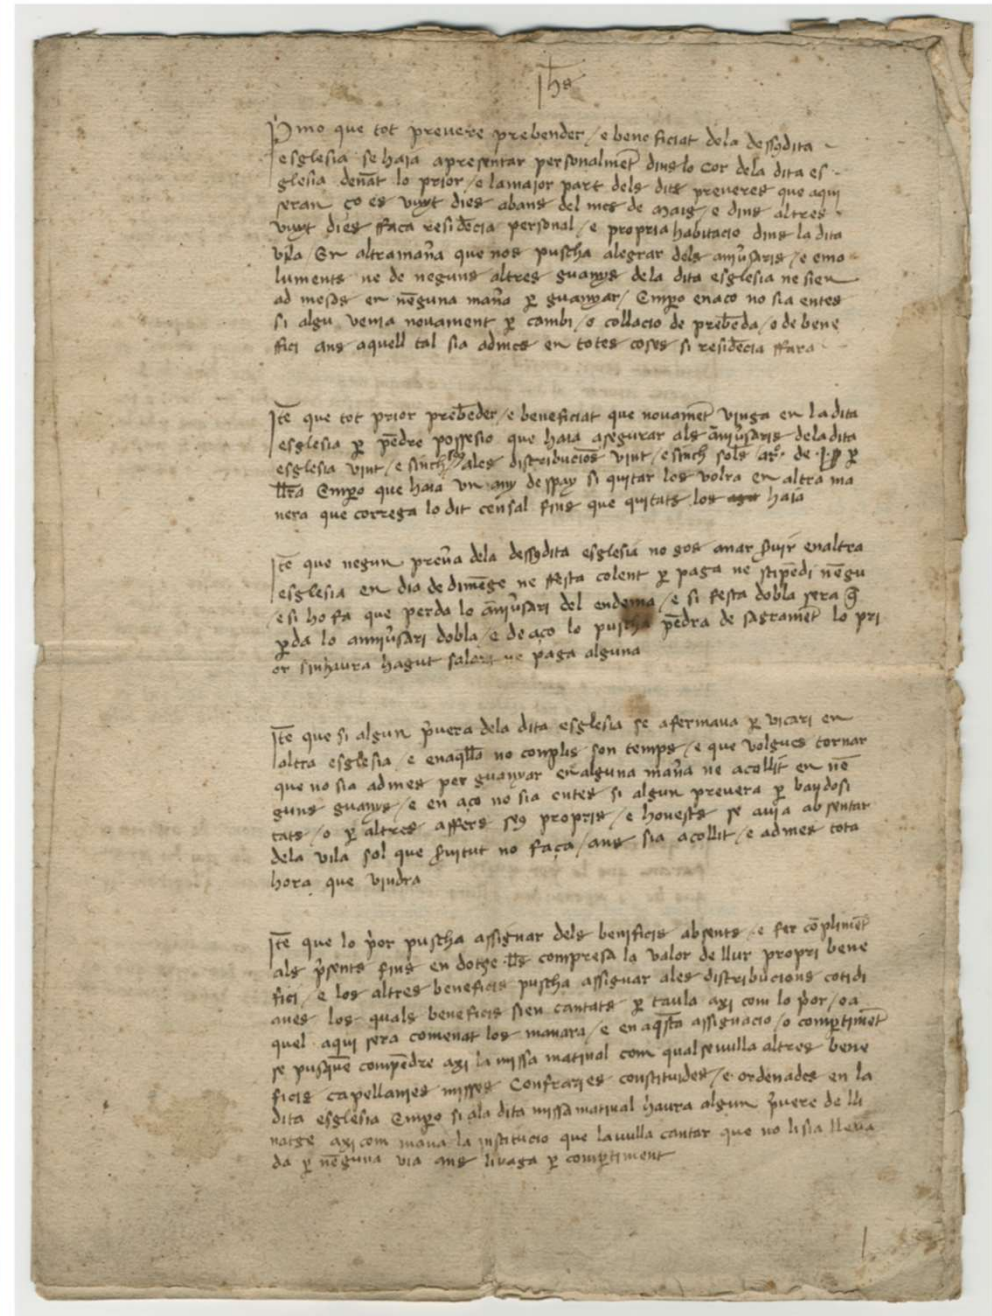 Jhs
Pmo que tot prevere prebender / e beneficiat dela dessydita
esglesia se haia apresentar personalmet dins lo cor dela dita es
glesia denat lo prior / e la maior part dels dits preveres que aqui
seran ço es vuyt dies abans del mes de maig / e dins altres
vuyt dies ffaça residecia personal / e propria habitacio dins la dita
vila En altra maña que nos puscha alegrar dels aniusaris / e emo
luments ne de neguns altres guanys dela dita esglesia ne sien
ad mesos en neguna maña p guanyar / Empo en aço no sia entes
si algu venia novament p cambi / o collacio de prebeda / o de bene
ffici ans aquell tal sia admes en totes coses si residecia ffara
Ite que tot prior prebeder / e beneficiat que novamet vinga en la dita
esglesia p pedre possesio que haia asegurar als aniusaris dela dita
esglesia vint / e sinch ss ales distribucios vint / e sinch sols de p
llra Empo que haia un any de spay si quitar los volra en altra ma
nera que correga lo dit censal fins que quitats los haia
Ite que negun preva dela dessydita esglesia no gos anar svir en altra
esglesia en dia de dimege ne ffesta colent p paga ne stipedi negu
e si ho fa que perda lo aniusari del endema / e si festa dobla sera q
pda lo anniusari dobla / e de aço lo puscha pedra de sagramet lo pri
or sin haura hagut salari ne paga alguna
Ite que si algun pvera dela dita esglesia se afermava p vicari en
altra esglesia / e en aqlla no complis son temps / e que volgues tornar
que no sia admes per guanyar en alguna maña ne acollit en ne
guns guanys / e en aço no sia entes si algun prevera p bandosi
tats / o p altres affers seus propris / e honests se avia absentar
dela vila sol que svitut no faça / ans sia acollit / e admes tota
hora que vindra
Ite que lo por puscha assignar dels benificis absents e fer coplimet
als psents fins en dotze lls compresa la valor de llur propri bene
fici / e los altres beneficis puscha assignar ales distribucions cotidi
anes los quals beneficis sien cantats p taula axi com lo por / o a
quel aqui sera comenat los manara / e en aqsta assignacio / o compartimet
se pusque compedre axi la missa matinal com qualsevulla altres bene
ficis capellanies misses Confraries constituides / e ordenades en la
dita esglesia Empo si ala dita missa matinal haura algun pvere de lli
natge axi com mana la institucio que la vulla cantar que no li sia lleva
da p neguna via ans li vaga p compartiment